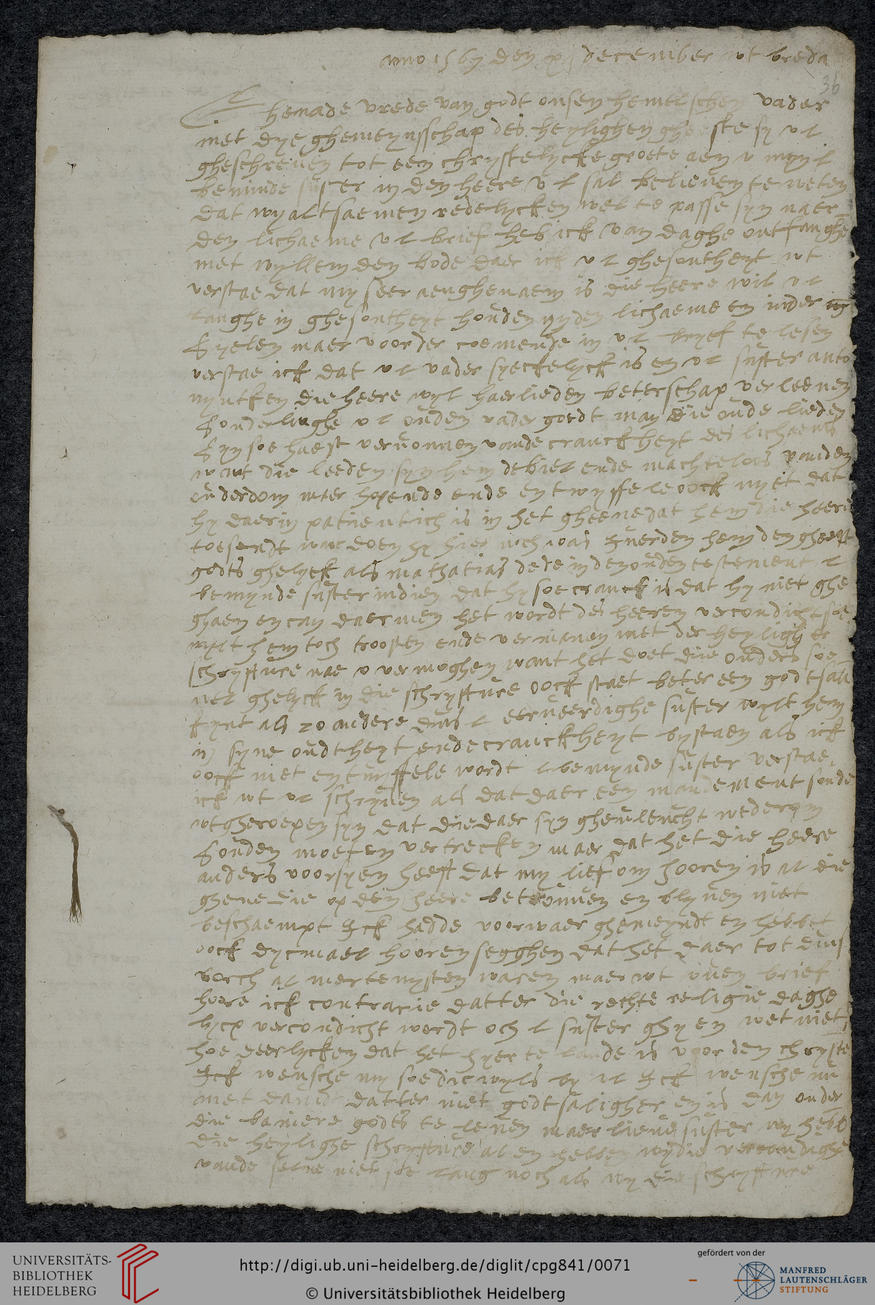 anno 1567 den x december wt breda
36
Ghenade vrede van godt onsen hemelschen vader
met dye ghemeynsschap des heylighen gheeste sy v l
gheschreven tot een chrystelycke groete aen v myn l
beminde suster in den heere v l sal believen te weten
dat wy altsaemen redelycken wel te passe syn naer
den lichaeme v l brief heb ick van daghe ontfanghe
met wyllem den bode daer ick v l ghesontheyt wt
verstae dat my seer aenghenaem is die heere wil v l
langhe in ghesontheyt houden nyden lichaeme en inder
syelen maer voorder coemende in v l bryef te lesen
verstae ick dat v l vader syeckelyck is en v l suster anto
nyntken die heere wyl haerlieden beterschap verleenen
sonderlinghe v l ouden vader goedt man die oude lieden
syn soe haest verwonnen vande cranckheyt des lichaems
want die leeden syn hem debiel ende machteloos vanden
ouderdom mter hopende ende en twyffele oock nyet dat
hy daerin patientich is in het gheene dat hem die heere
toesendt
godts ghelyck als mathatias dede inden ouden testament l
bemynde suster indien dat hy soe cranck is dat hy niet ghe
ghaen en can daer men het wordt des heeren vercondicht soe
wylt hem toch troosten ende vermanen met der heyligher
schryfture nae v vermoghen want het doet die ouders soe
wel ghelyck in die schryfture oock staet beter een godtsali
kynt als 20 andere dus l eerweerdighe suster wylt hem
in syne oudtheyt ende cranckheyt bystaen als ick
oock niet en twyffele wordt l bemynde suster verstae
ick wt v l schryven als dat daer een mandement soude
wtgheroepen syn dat die daer syn ghevlucht wederom
souden moeten vertrecken maer dat het die heere
anders voorsyen heeft dat my lief om hooren is al die
ghene die op den heere betrouwen en blyven niet
beschaempt Ick hadde voorwaer ghemeyndt en hebbet
oock dycmael hooren segghen dat het daer tot duus
borch al mertenysten waren maer wt uwen brief
hoore ick contrarie datter die rechte religie daghe
lycx vercondicht wordt och l suster ghy en wet niet
hoe deerlycken dat het hyer te lande is voor den chryste
Ick wensche my soe dicwyls by v l Ick wensche nu
met david datter niet godtsaligher en is dan onder
die baniere godts te leven maer lieve suster wy hebb
die heylighe schryfture al en hebben wy die vercondighe
vande selve niet soe lang noch als wy die schryfture
UNIVERSITÄTS-
BIBLIOTHEK
HEIDELBERG
http://digi.ub.uni-heidelberg.de/diglit/cpg841/0071
© Universitätsbibliothek Heidelberg
gefördert von der
MANFRED
LAUTENSCHLÄGER
STIFTUNG